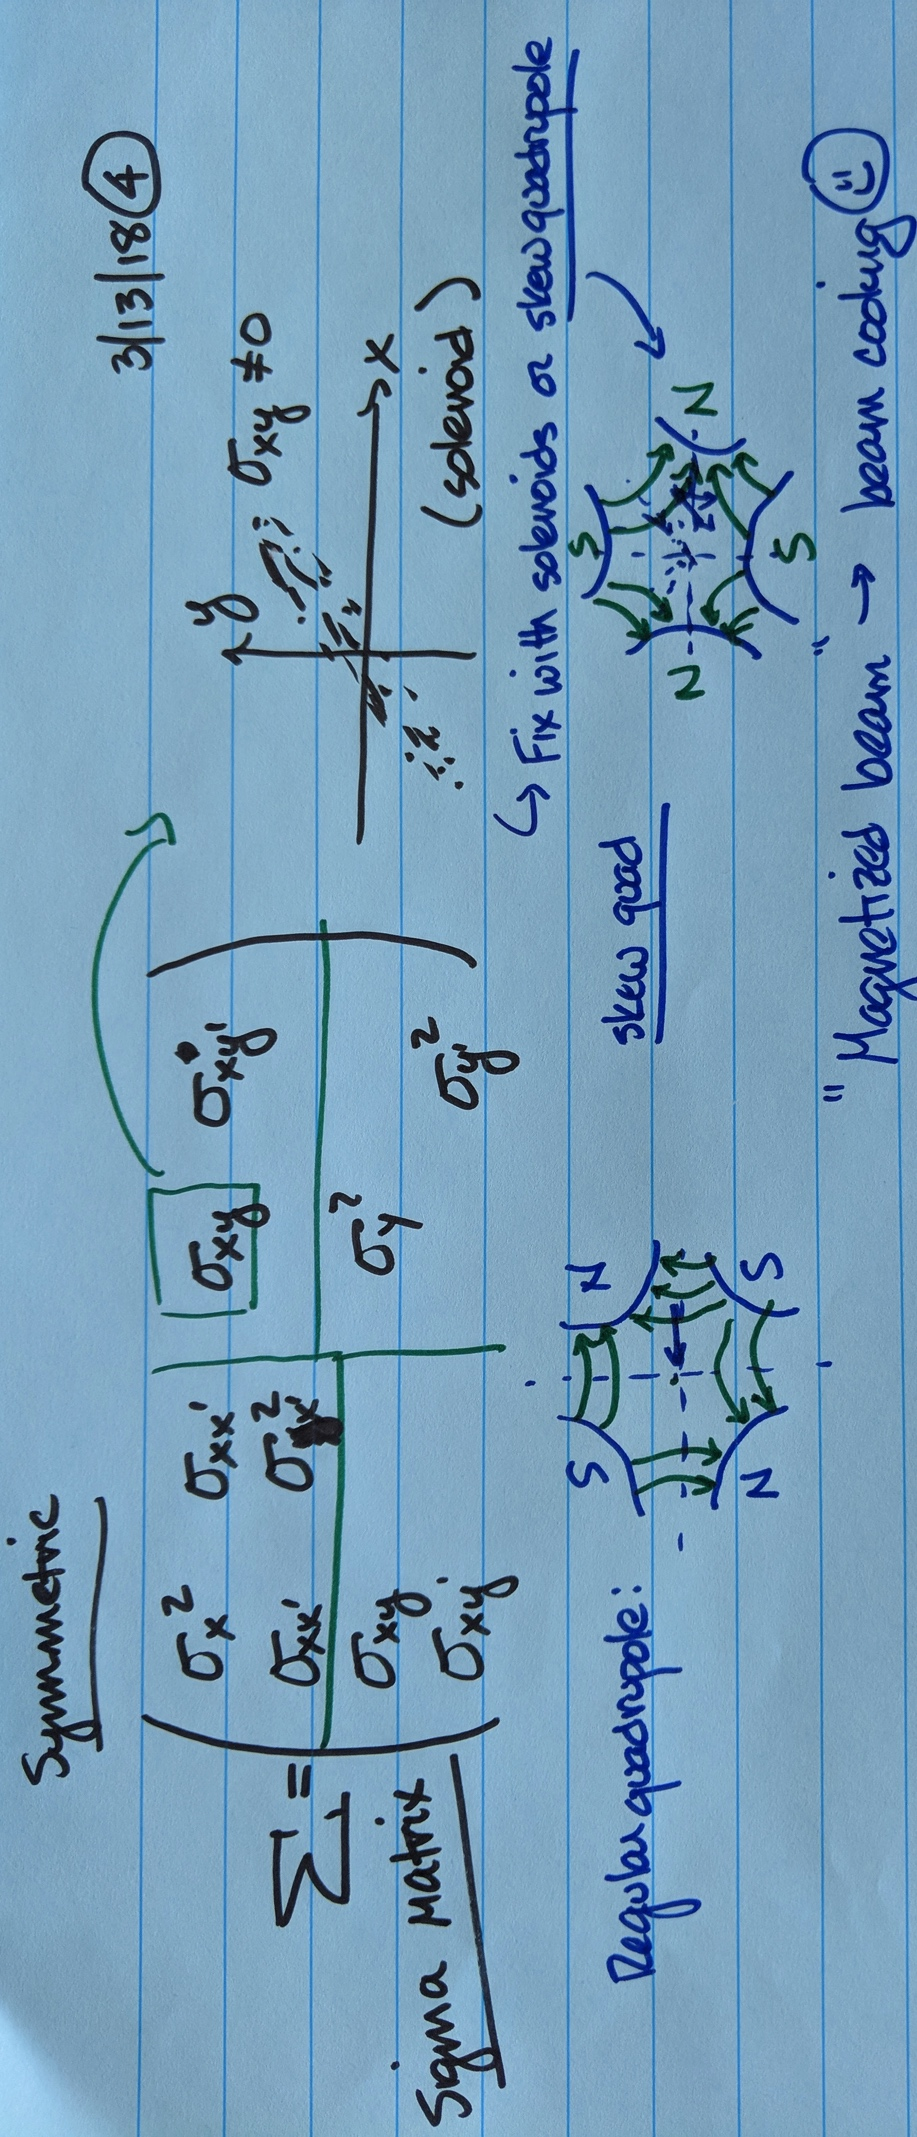 3/13/18 4
Symmetric
Σ = ( σx² σxx' σxy σxy'
σxx' σx'²
σxy σy²
σxy' σy'² )
Sigma Matrix
y
σxy ≠ 0
x
(solenoid)
↳ Fix with solenoids or skew quadrupole
Regular quadrupole:
S N
N S
skew quad
S
N N
S
"Magnetized beam" → beam cooling